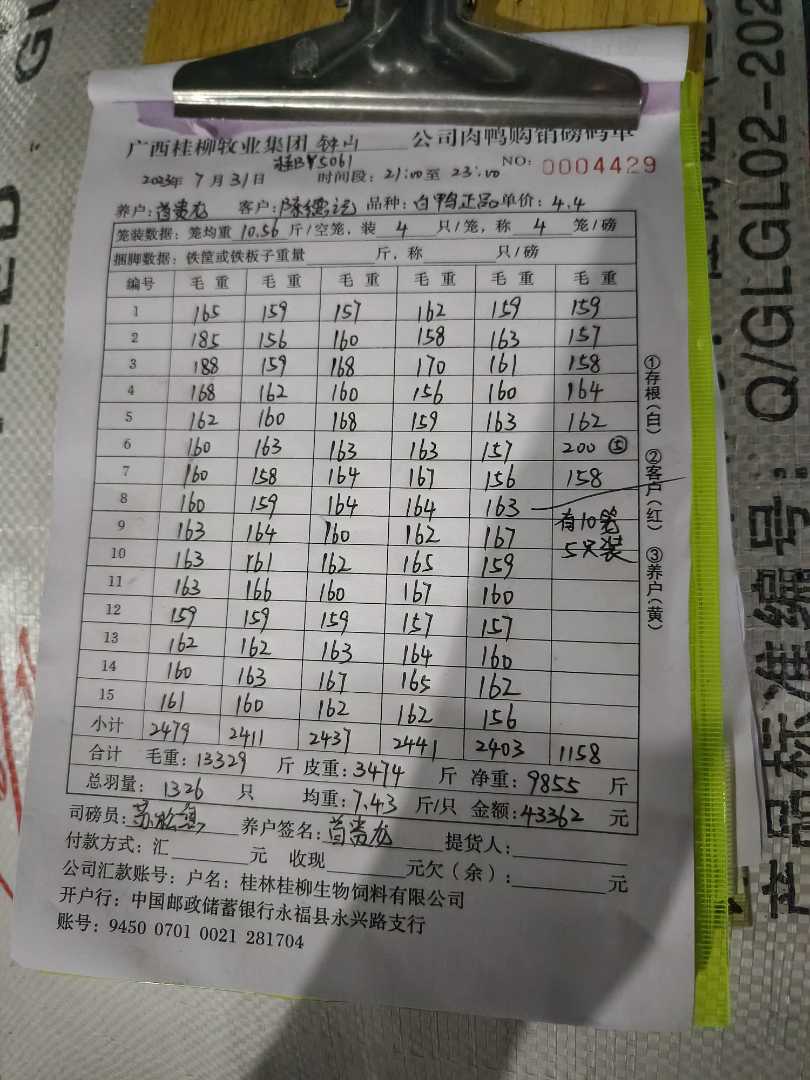 广西桂柳牧业集团 钟山 公司肉鸭购销磅码单
桂BY5061
NO: 0004429
2023年 7 月 31 日 时间段: 21:00 至 23:00
养户: 客户: 陈德运 品种: 白鸭正品 单价: 4.4
笼装数据: 笼均重 10.56 斤/空笼, 装 4 只/笼, 称 4 笼/磅
捆脚数据: 铁筐或铁板子重量 斤, 称 只/磅
编号 毛重 毛重 毛重 毛重 毛重 毛重
1 165 159 157 162 159 159
2 185 156 160 158 163 157
3 188 159 168 170 161 158
4 168 162 160 156 160 164
5 162 160 168 159 163 162
6 160 163 163 163 157 200 ⑤
7 160 158 164 167 156 158
8 160 159 164 164 163
9 163 164 160 162 167 有10笼
10 163 161 162 165 159 5只装
11 163 166 160 167 160
12 159 159 159 157 157
13 162 162 163 164 160
14 160 163 167 165 162
15 161 160 162 162 156
小计 2479 2411 2437 2441 2403 1158
合计 毛重: 13329 斤 皮重: 3474 斤 净重: 9855 斤
总羽量: 1326 只 均重: 7.43 斤/只 金额: 43362 元
司磅员: 养户签名: 提货人:
付款方式: 汇 元 收现 元欠(余): 元
公司汇款账号: 户名: 桂林桂柳生物饲料有限公司
开户行: 中国邮政储蓄银行永福县永兴路支行
账号: 9450 0701 0021 281704
①存根(白) ②客户(红) ③养户(黄)
产品标准编号: Q/GLGL02-202